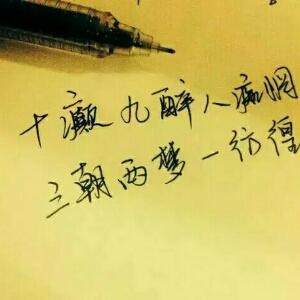 十癫九醉人痴惘
三朝两梦一彷徨